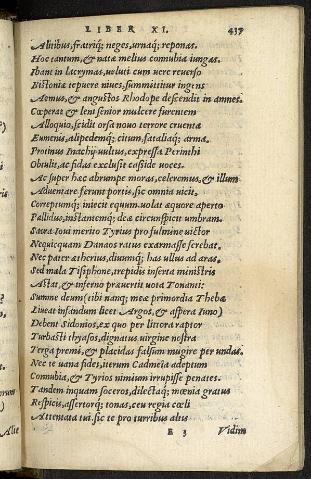 LIBER XI. 437
Altibus, fratriq; neges, urnaq; reponas.
Hoc tantum, & nata melius connubia iungas.
Ibant in lacrymas, ueluti cum uere reuerso
Bistoniæ tepuere niues, summittitur ingens
Aemus, & angustos Rhodope descendit in amnes.
Cœperat & leni senior mulcere furentem
Alloquio, scidit orsa nouo terrore cruenta
Eumenis, alipedemq; citum, fataliaq; arma.
Protinus Inachij uultus, expressa Perinthi
Obtulit, ac fidas exclusit casside uoces.
Ac super hæc abrumpe moras, celeremus, & illum
Aduentare ferunt portis, sic omnia uicit.
Correptumq; iniecit equum, uolat æquore aperto
Pallidus, instantemq; deæ circumspicit umbram.
Sacra Ioui merito Tyrius pro fulmine uictor
Nequicquam Danaos ratus exarmasse ferebat.
Nec pater ætherius, diuumq; has ullus ad aras.
Sed mala Tisiphone, trepidis inserta ministris
Astat, & inferno præuertit uota Tonanti:
Summe deum (tibi nanq; meæ primordia Thebæ
Liueat infandum licet Argos, & aspera Iuno)
Debent Sidonios, ex quo per littora raptor
Turbasti thyasos, dignatus uirgine nostra
Terga premi, & placidas falsum mugire per undas.
Nec te uana fides, iterum Cadmeia adeptum
Connubia, & Tyrios nimium irrupisse penates.
Tandem inquam soceros, dilectaq; mœnia gratus
Respicis, assertorq; tonas, ceu regia cœli
Attentata tui, sic te pro turribus altis
E 3 Vidim